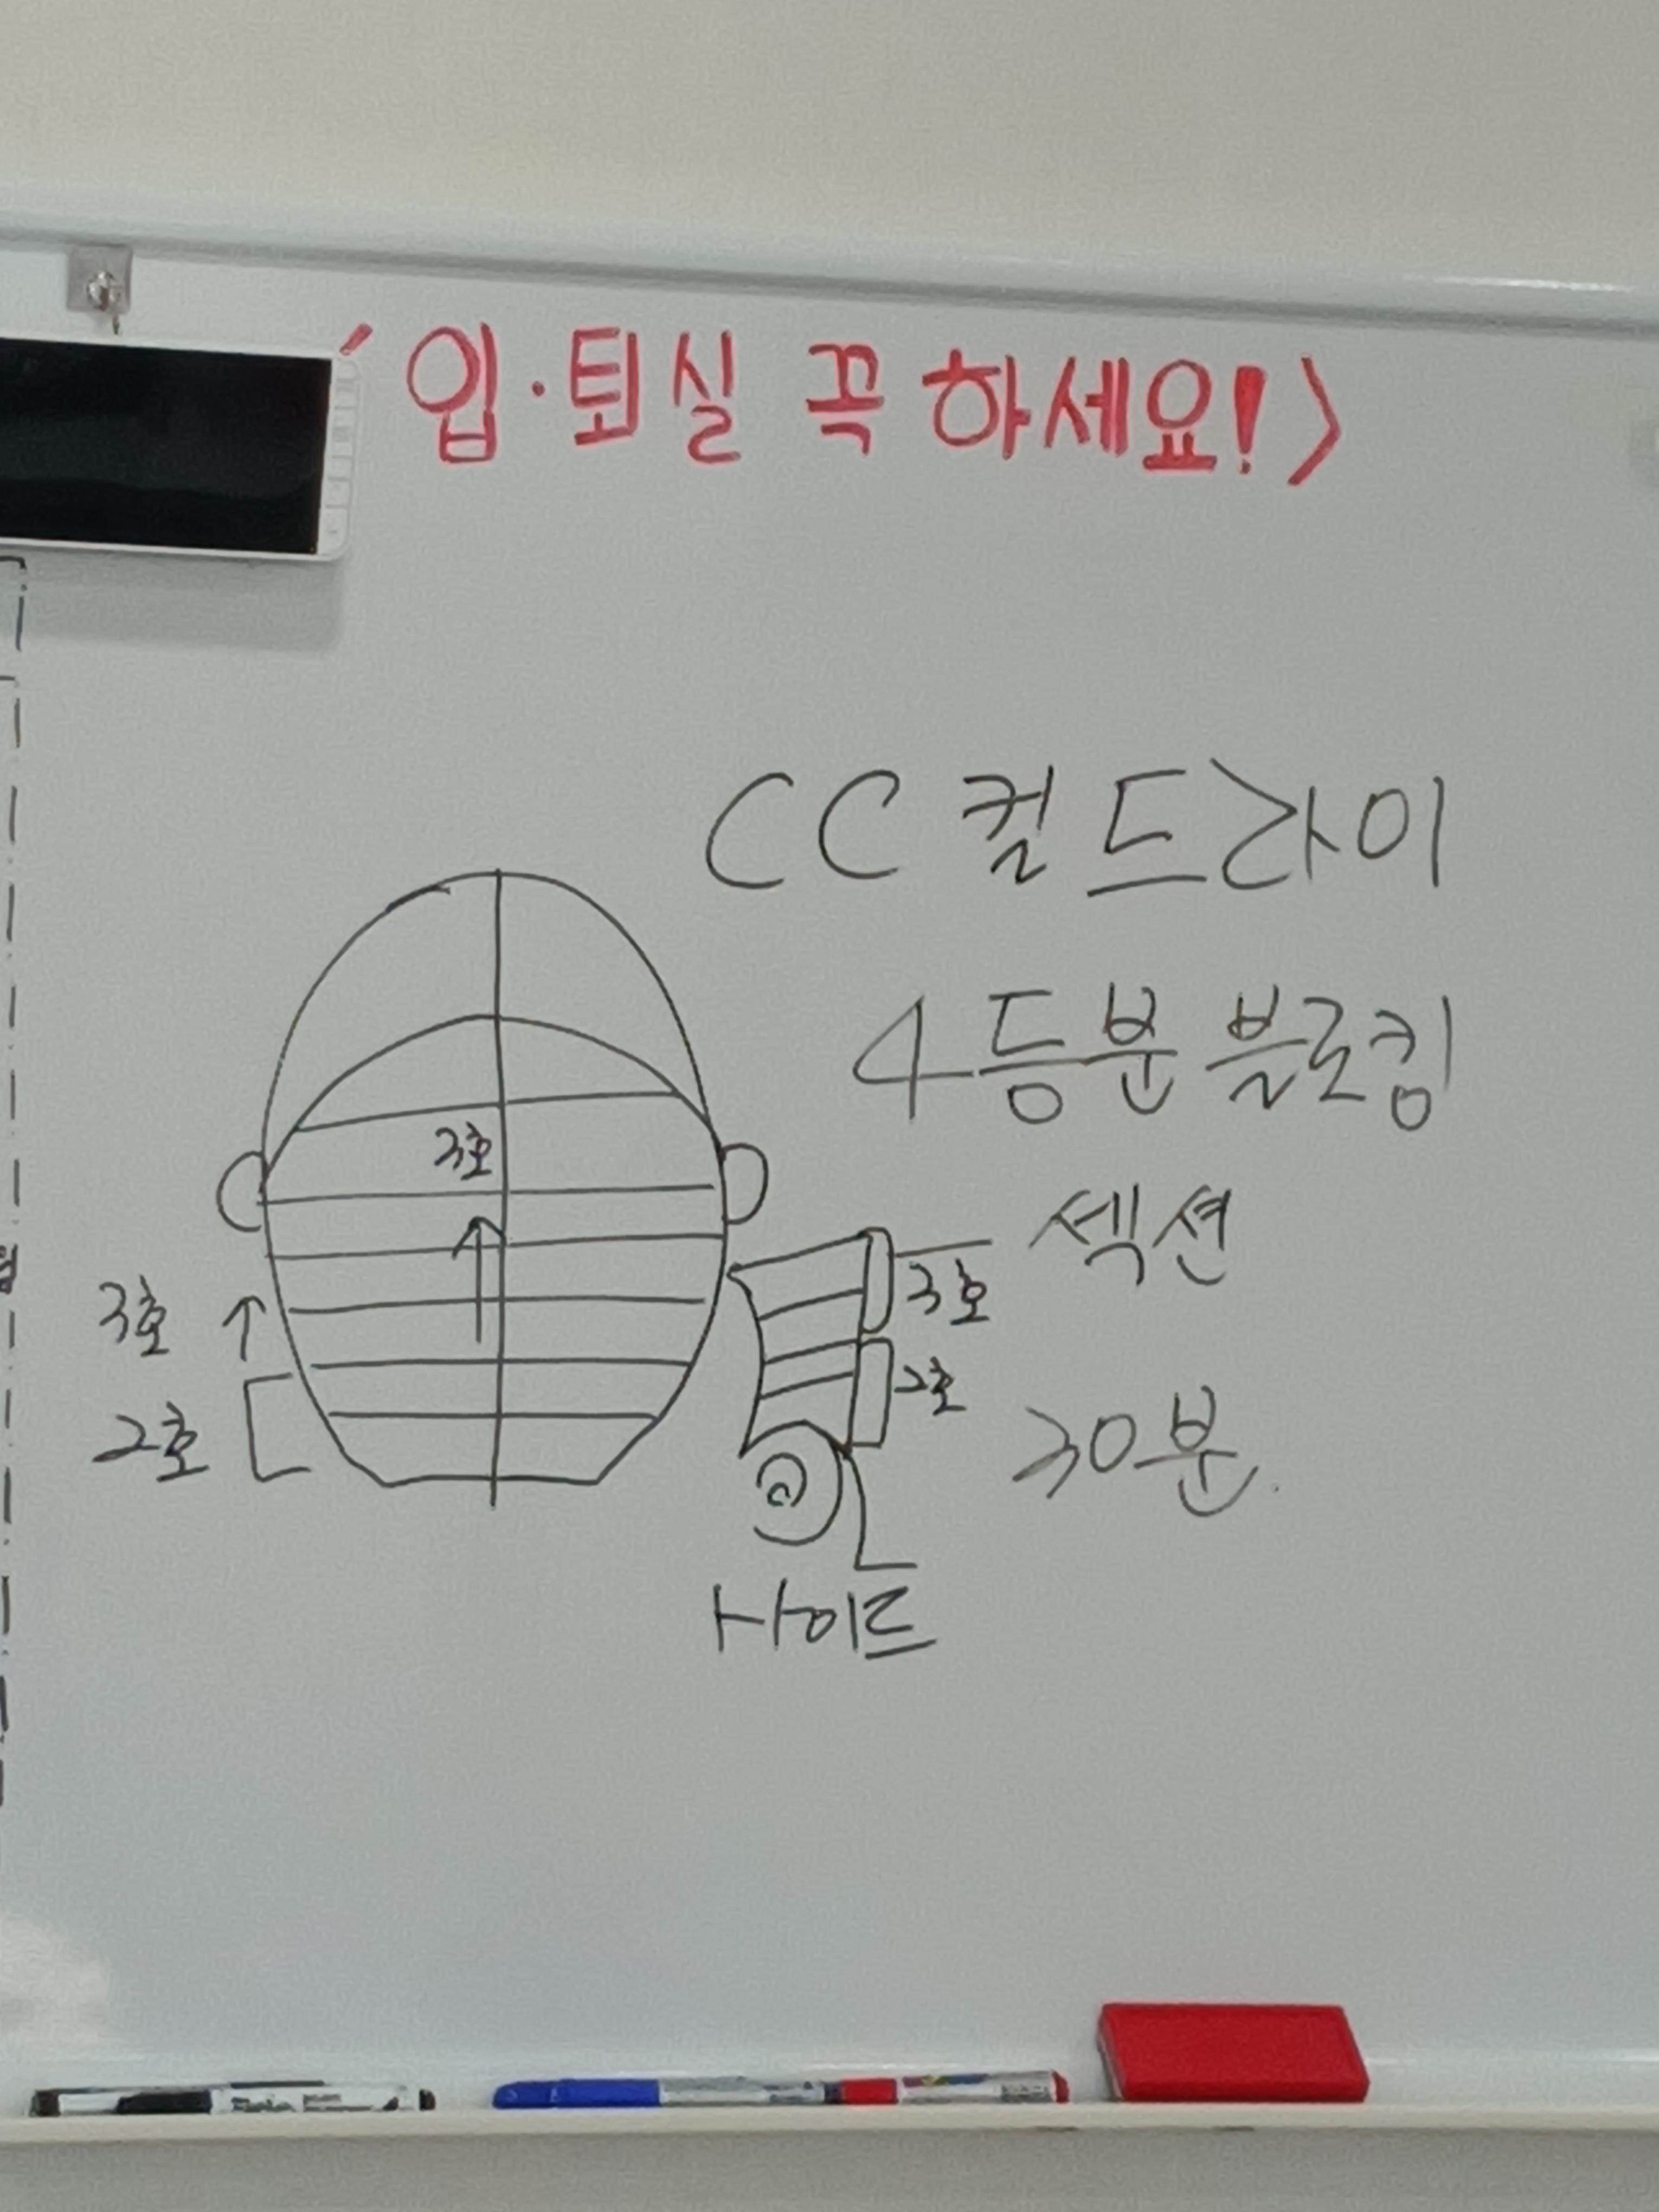 입·퇴실 꼭 하세요!>
CC 컬 드라이
4등분 블로킹
섹션
30분.
3호
3호
2호
3호
2호
사이드